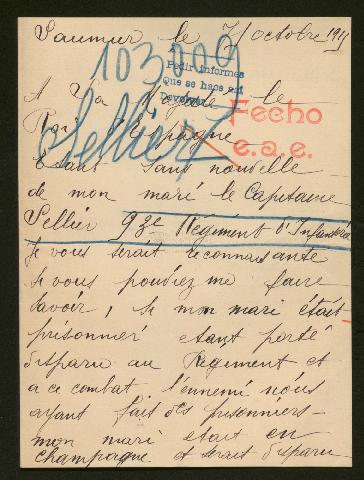 Saumur le 7 octobre 1915
103,009
Pedir informes
Que se hace así
Devolver
A Sa Majesté le
Fecho
Roi d'Espagne
e.a.e.
Sellier
Etant sans nouvelle
de mon mari le Capitaine
Sellier 93e Regiment d'Infanterie
Je vous serait reconnaissante
si vous pouvriez me faire
savoir, si mon mari était
prisonnier etant porté
disparu au Régiment et
a ce combat l'ennemi nous
ayant fait des prisonniers -
mon mari etait en
champagne et serait disparu